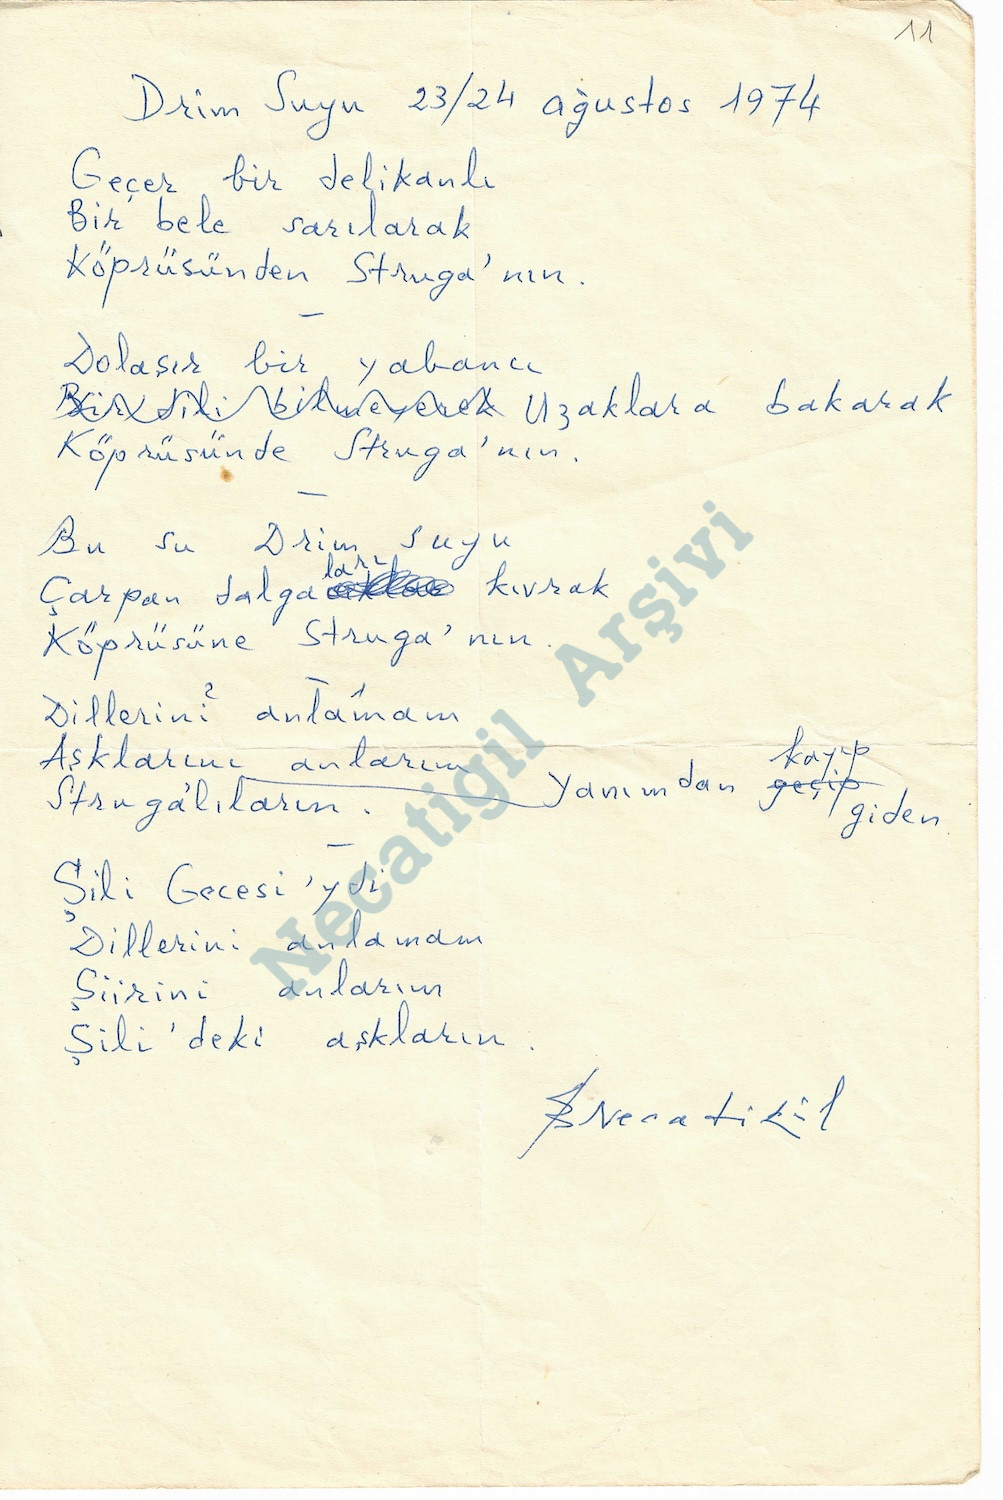 11
Drim Suyu 23/24 ağustos 1974
Geçer bir delikanlı
Bir bele sarılarak
Köprüsünden Struga'nın.
—
Dolaşır bir yabancı
Bir dili bilmeyerek Uzaklara bakarak
Köprüsünde Struga'nın.
—
Bu su Drim suyu
Çarpan dalgaları kıvrak
Köprüsüne Struga'nın.
—
Dillerini 2 anlamam 1
Aşklarını anlarım
Struga'lıların. Yanımdan geçip kayıp giden
—
Şili Gecesi'ydi
Dillerini anlamam
Şiirini anlarım
Şili'deki aşkların.
BNecatigil
Necatigil Arşivi